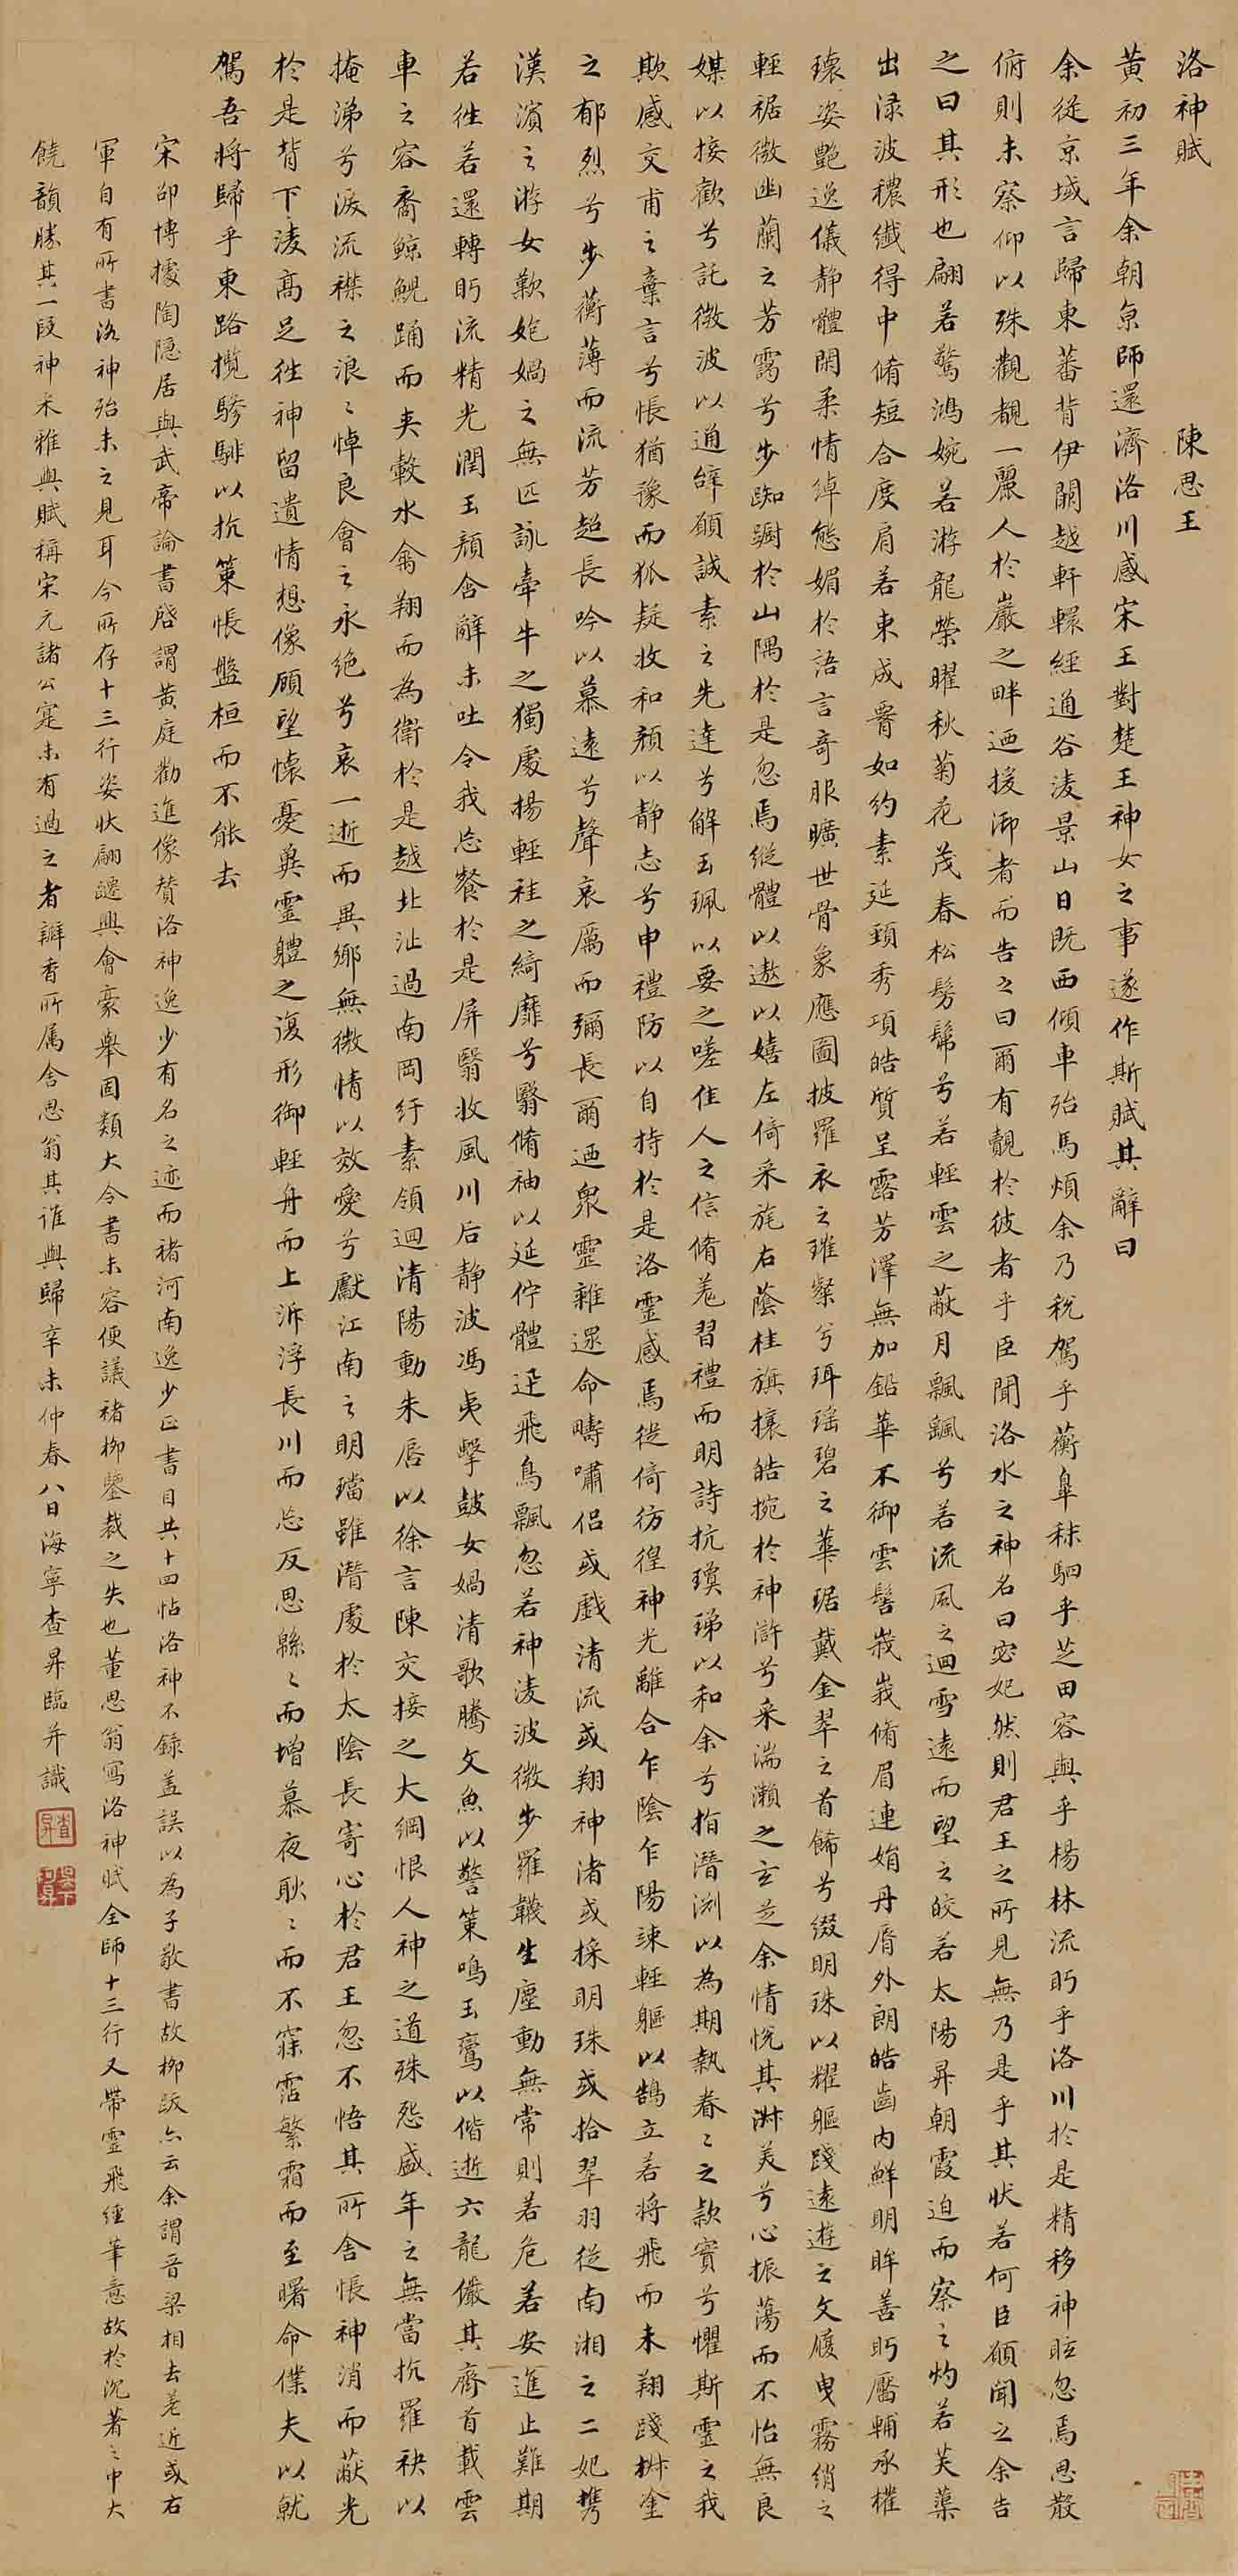 洛神賦 陳思王
黃初三年余朝京師還濟洛川感宋玉對楚王神女之事遂作斯賦其辭曰
余從京域言歸東蕃背伊闕越轘轅經通谷淩景山日既西傾車殆馬煩余乃稅駕乎蘅皐秣駟乎芝田容與乎楊林流眄乎洛川於是精移神眩忽焉思散
俯則未察仰以殊觀覩一麗人於巖之畔迺援御者而告之曰爾有覿於彼者乎臣聞洛水之神名曰宓妃然則君王之所見無乃是乎其狀若何臣願聞之余告
之曰其形也翩若驚鴻婉若游龍榮曜秋菊花茂春松髣髴兮若輕雲之蔽月飄颻兮若流風之迴雪遠而望之皎若太陽昇朝霞迫而察之灼若芙蕖
出淥波穠纖得中脩短合度肩若束成署如約素延頸秀項皓質呈露芳澤無加鉛華不御雲髻峩峩脩眉連娟丹脣外朗皓齒內鮮明眸善眄靨輔承權
瓌姿艷逸儀靜體閑柔情綽態媚於語言奇服曠世骨象應圖披羅衣之璀粲兮珥瑤碧之華琚戴金翠之首飾兮綴明珠以耀軀踐遠遊之文履曳霧綃之
輕裾微幽蘭之芳靄兮步踟躕於山隅於是忽焉縱體以遨以嬉左倚采旄右蔭桂旗攘皓捥於神滸兮采湍瀨之玄芝余情悅其淋美兮心振蕩而不怡無良
媒以接歡兮託微波以通辭願誠素之先達兮解玉珮以要之嗟佳人之信脩羌習禮而明詩抗瓊珶以和余兮指潛淵以為期執眷眷之款實兮懼斯靈之我
欺感交甫之棄言兮悵猶豫而狐疑收和顏以靜志兮申禮防以自持於是洛靈感焉徙倚彷徨神光離合乍陰乍陽竦輕軀以鵠立若將飛而未翔踐椒塗
之郁烈兮步蘅薄而流芳超長吟以慕遠兮聲哀厲而彌長爾迺衆靈雜遝命疇嘯侶或戲清流或翔神渚或採明珠或拾翠羽從南湘之二妃攜
漢濱之游女歎匏媧之無匹詠牽牛之獨處揚輕袿之綺靡兮翳脩袖以延佇體迅飛鳥飄忽若神淩波微步羅韈生塵動無常則若危若安進止難期
若往若還轉眄流精光潤玉顏含辭未吐令我忘餐於是屏翳收風川后靜波馮夷擊鼓女媧清歌騰文魚以警策鳴玉鸞以偕逝六龍儼其齊首載雲
車之容裔鯨鯢踊而夾轂水禽翔而為衛於是越北沚過南岡紆素領迴清陽動朱唇以徐言陳交接之大綱恨人神之道殊怨盛年之無當抗羅袂以
掩涕兮淚流襟之浪浪悼良會之永絕兮哀一逝而異鄉無微情以效愛兮獻江南之明璫雖潛處於太陰長寄心於君王忽不悟其所舍悵神消而蔽光
於是背下淩高足往神留遺情想像顧望懷憂冀靈軆之復形御輕舟而上泝浮長川而忘反思緜緜而增慕夜耿耿而不寐霑繁霜而至曙命僕夫以就
駕吾將歸乎東路攬騑以抗策悵盤桓而不能去
宋邵博據陶隱居與武帝論書啓謂黃庭勸進像贊洛神逸少有名之迹而褚河南逸少正書目共十四帖洛神不錄蓋誤以為子敬書故柳跋亦云余謂晉梁相去差近或右
軍自有所書洛神殆未之見耳今所存十三行姿狀翩躚興會豪舉固類大令書未容便議褚柳鑒裁之失也董思翁寫洛神賦全師十三行又帶靈飛經筆意故於沉著之中大
饒韻勝其一段神采雅與賦稱宋元諸公寔未有過之者瓣香所屬舍思翁其誰與歸辛未仲春八日海寧查昇臨并識